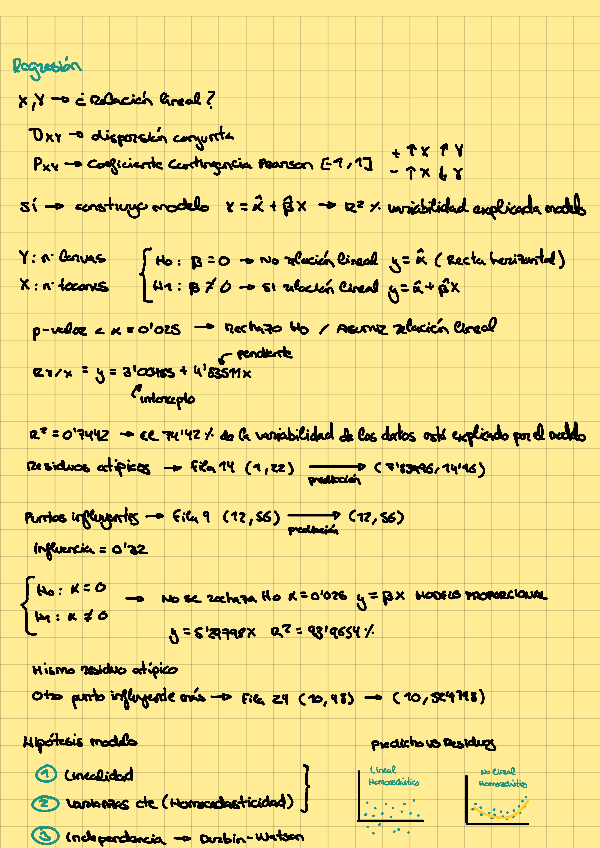 Regresión
X,Y → ¿Relación lineal?
DXY → dispersión conjunta
PXY → Coeficiente Contingencia Pearson [-1,1] + ↑X ↑Y
- ↑X ↓Y
Sí → construyo modelo Y = α̂ + β̂X → R² % variabilidad explicada modelo
Y: nº larvas { H0: β = 0 → No relación lineal y = α̂ (Recta horizontal)
X: nº tocones { H1: β ≠ 0 → Sí relación lineal y = α̂ + β̂X
p-valor < α = 0'025 → Rechazo H0 / Asumir relación lineal
pendiente
RY/X = y = + 4'83511x
intercepto
R² = 0'7442 → el 74'42% de la variabilidad de los datos está explicado por el modelo
Residuos atípicos → Fila 14 (1,22) → 14'16)
predicción
Puntos influyentes → Fila 9 (12,56) → (12,56)
predicción
Influencia = 0'32
{ H0: α = 0
H1: α ≠ 0 → No se rechaza H0 α = 0'025 y = βX MODELO PROPORCIONAL
y = 5'24798x R² = 93'9654%
Mismo residuo atípico
Otro punto influyente más → Fila 24 (10,48) → (10,524798)
Hipótesis modelo Predicho vs Residuos
① Linealidad }
② Varianzas cte (Homocedasticidad)
Lineal
Homocedástico
No Lineal
Homocedástico
③ Independencia → Durbin-Watson